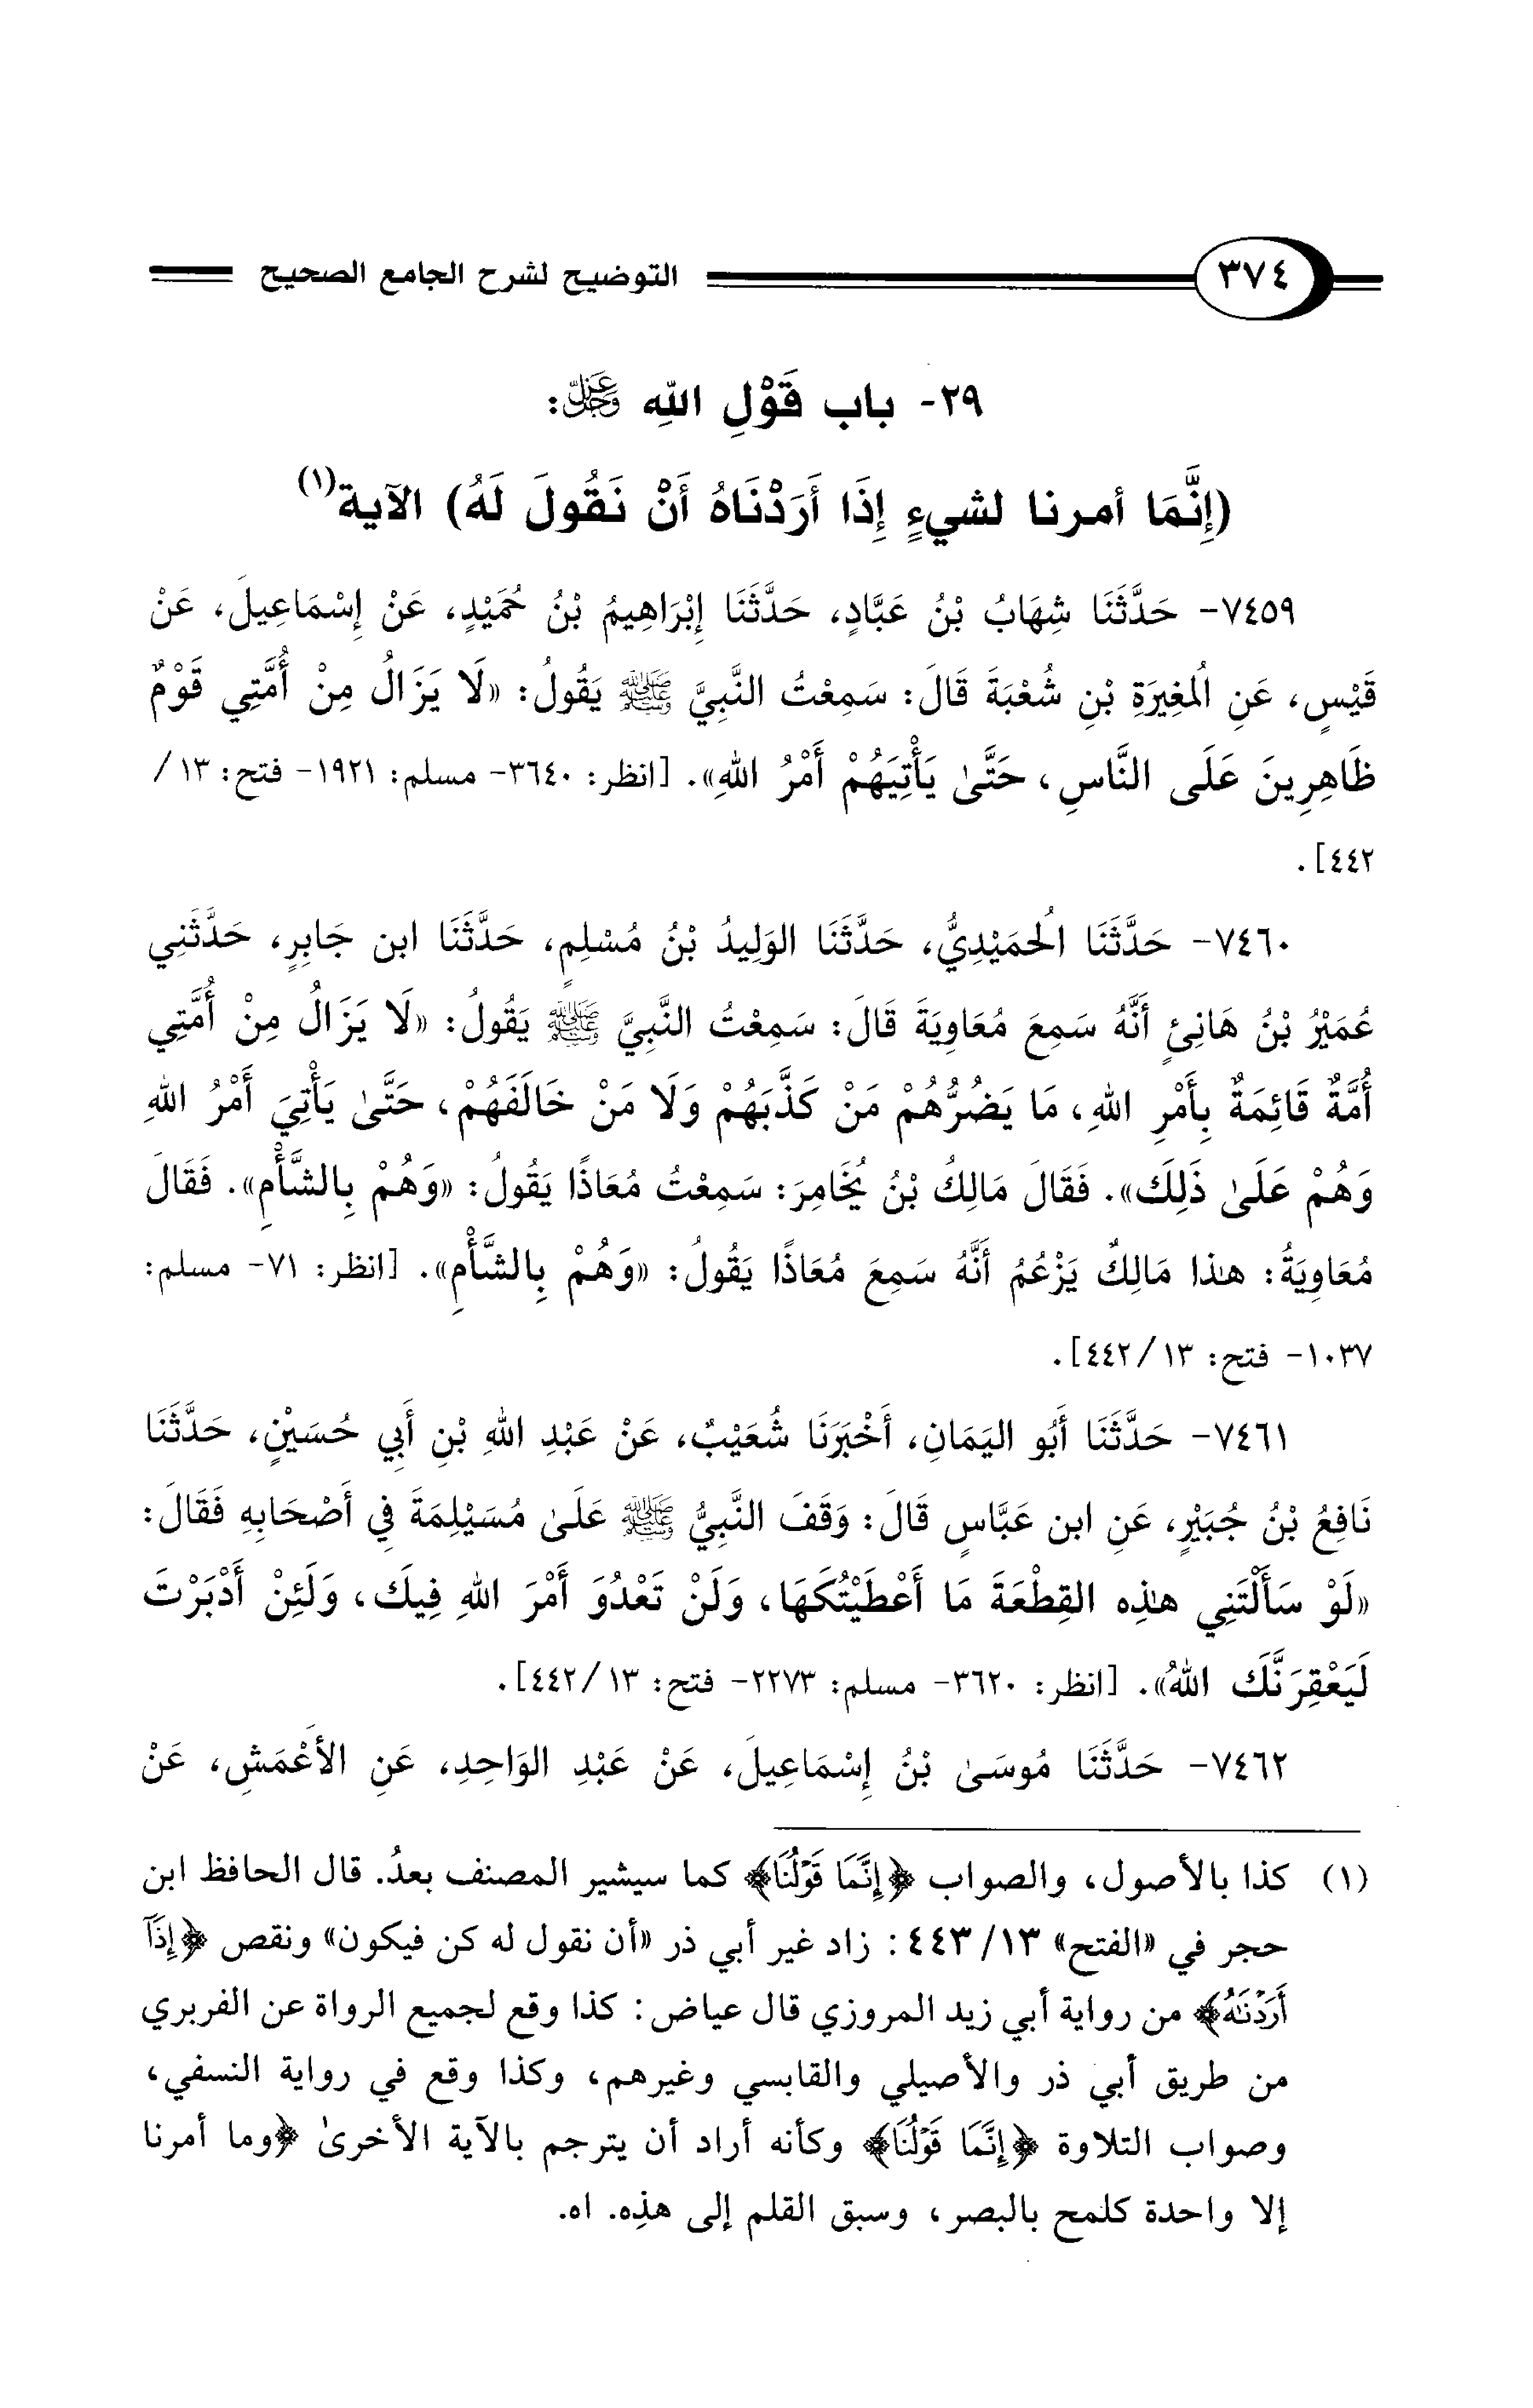 ٣٧٤ التوضيح لشرح الجامع الصحيح
٢٩- باب قَوْلِ اللهِ عَزَّ وَجَلَّ:
(إِنَّمَا أمرنا لشيءٍ إِذَا أَرَدْنَاهُ أَنْ نَقُولَ لَهُ) الآية(١)
٧٤٥٩- حَدَّثَنَا شِهَابُ بْنُ عَبَّادٍ، حَدَّثَنَا إِبْرَاهِيمُ بْنُ حُمَيْدٍ، عَنْ إِسْمَاعِيلَ، عَنْ
قَيْسٍ، عَنِ المُغِيرَةِ بْنِ شُعْبَةَ قَالَ: سَمِعْتُ النَّبِيَّ ﷺ يَقُولُ: «لَا يَزَالُ مِنْ أُمَّتِي قَوْمٌ
ظَاهِرِينَ عَلَى النَّاسِ، حَتَّىٰ يَأْتِيَهُمْ أَمْرُ اللهِ». [انظر: ٣٦٤٠- مسلم: ١٩٢١- فتح: ١٣/
٤٤٢].
٧٤٦٠- حَدَّثَنَا الُحمَيْدِيُّ، حَدَّثَنَا الوَلِيدُ بْنُ مُسْلِمٍ، حَدَّثَنَا ابن جَابِرٍ، حَدَّثَنِي
عُمَيْرُ بْنُ هَانِئٍ أَنَّهُ سَمِعَ مُعَاوِيَةَ قَالَ: سَمِعْتُ النَّبِيَّ ﷺ يَقُولُ: «لَا يَزَالُ مِنْ أُمَّتِي
أُمَّةٌ قَائِمَةٌ بِأَمْرِ اللهِ، مَا يَضُرُّهُمْ مَنْ كَذَّبَهُمْ وَلَا مَنْ خَالَفَهُمْ، حَتَّىٰ يَأْتِيَ أَمْرُ اللهِ
وَهُمْ عَلَىٰ ذَلِكَ». فَقَالَ مَالِكُ بْنُ يُخَامِرَ: سَمِعْتُ مُعَاذًا يَقُولُ: «وَهُمْ بِالشَّأْمِ». فَقَالَ
مُعَاوِيَةُ: هذا مَالِكٌ يَزْعُمُ أَنَّهُ سَمِعَ مُعَاذًا يَقُولُ: «وَهُمْ بِالشَّأْمِ». [انظر: ٧١- مسلم:
١٠٣٧- فتح: ١٣/ ٤٤٢].
٧٤٦١- حَدَّثَنَا أَبُو اليَمَانِ، أَخْبَرَنَا شُعَيْبٌ، عَنْ عَبْدِ اللهِ بْنِ أَبِي حُسَيْنٍ، حَدَّثَنَا
نَافِعُ بْنُ جُبَيْرٍ، عَنِ ابن عَبَّاسٍ قَالَ: وَقَفَ النَّبِيُّ ﷺ عَلَىٰ مُسَيْلِمَةَ فِي أَصْحَابِهِ فَقَالَ:
«لَوْ سَأَلْتَنِي هذِه القِطْعَةَ مَا أَعْطَيْتُكَهَا، وَلَنْ تَعْدُوَ أَمْرَ اللهِ فِيكَ، وَلَئِنْ أَدْبَرْتَ
لَيَعْقِرَنَّكَ اللهُ». [انظر: ٣٦٢٠- مسلم: ٢٢٧٣- فتح: ١٣/ ٤٤٢].
٧٤٦٢- حَدَّثَنَا مُوسَىٰ بْنُ إِسْمَاعِيلَ، عَنْ عَبْدِ الوَاحِدِ، عَنِ الأَعْمَشِ، عَنْ
(١) كذا بالأصول، والصواب ﴿إِنَّمَا قَوْلُنَا﴾ كما سيشير المصنف بعدُ. قال الحافظ ابن
حجر في «الفتح» ١٣/ ٤٤٣: زاد غير أبي ذر «أن نقول له كن فيكون» ونقص ﴿إِذَآ
أَرَدْنَٰهُ﴾ من رواية أبي زيد المروزي قال عياض: كذا وقع لجميع الرواة عن الفربري
من طريق أبي ذر والأصيلي والقابسي وغيرهم، وكذا وقع في رواية النسفي،
وصواب التلاوة ﴿إِنَّمَا قَوْلُنَا﴾ وكأنه أراد أن يترجم بالآية الأخرىٰ ﴿وما أمرنا
إلا واحدة كلمح بالبصر، وسبق القلم إلى هذِه. اه.